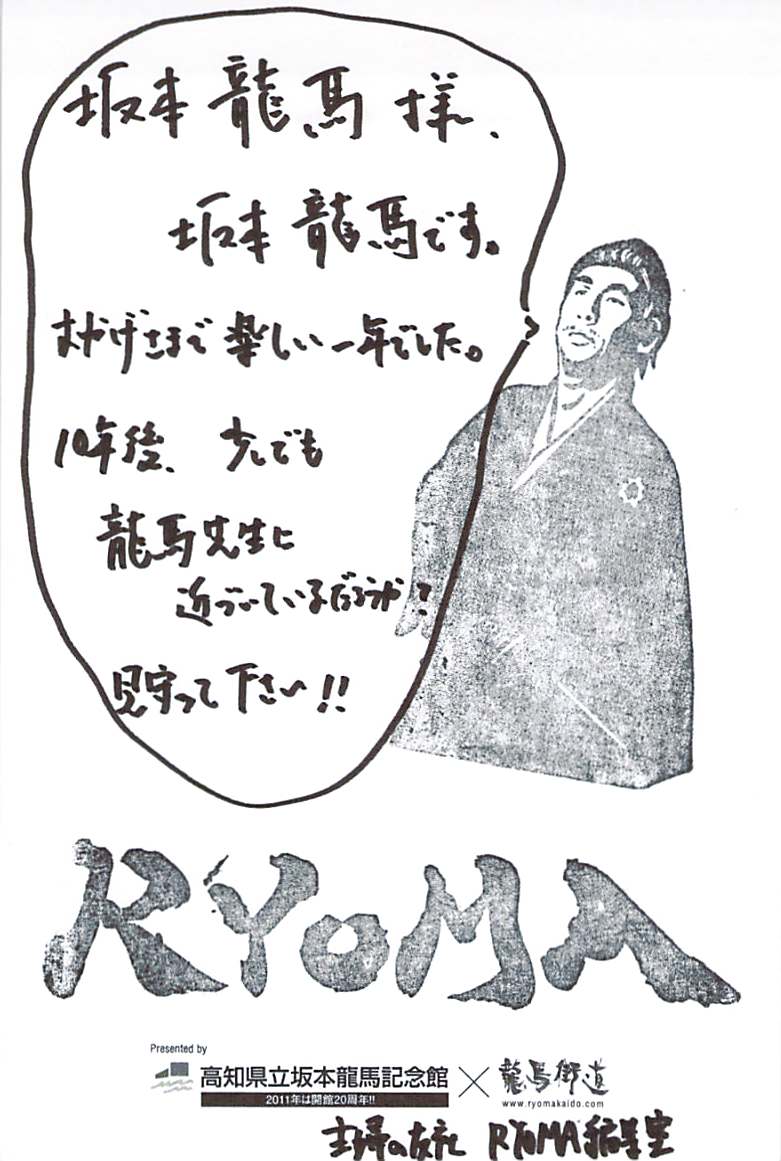 坂本龍馬様、
坂本龍馬です。
おかげさまで楽しい一年でした。
10年後、少しでも
龍馬先生に
近づいているだろうか?
見守って下さい!!
RYOMA
Presented by
高知県立坂本龍馬記念館
2011年は開館20周年!!
×
龍馬街道
www.ryomakaido.com
主婦の友社 RYOMA編集室